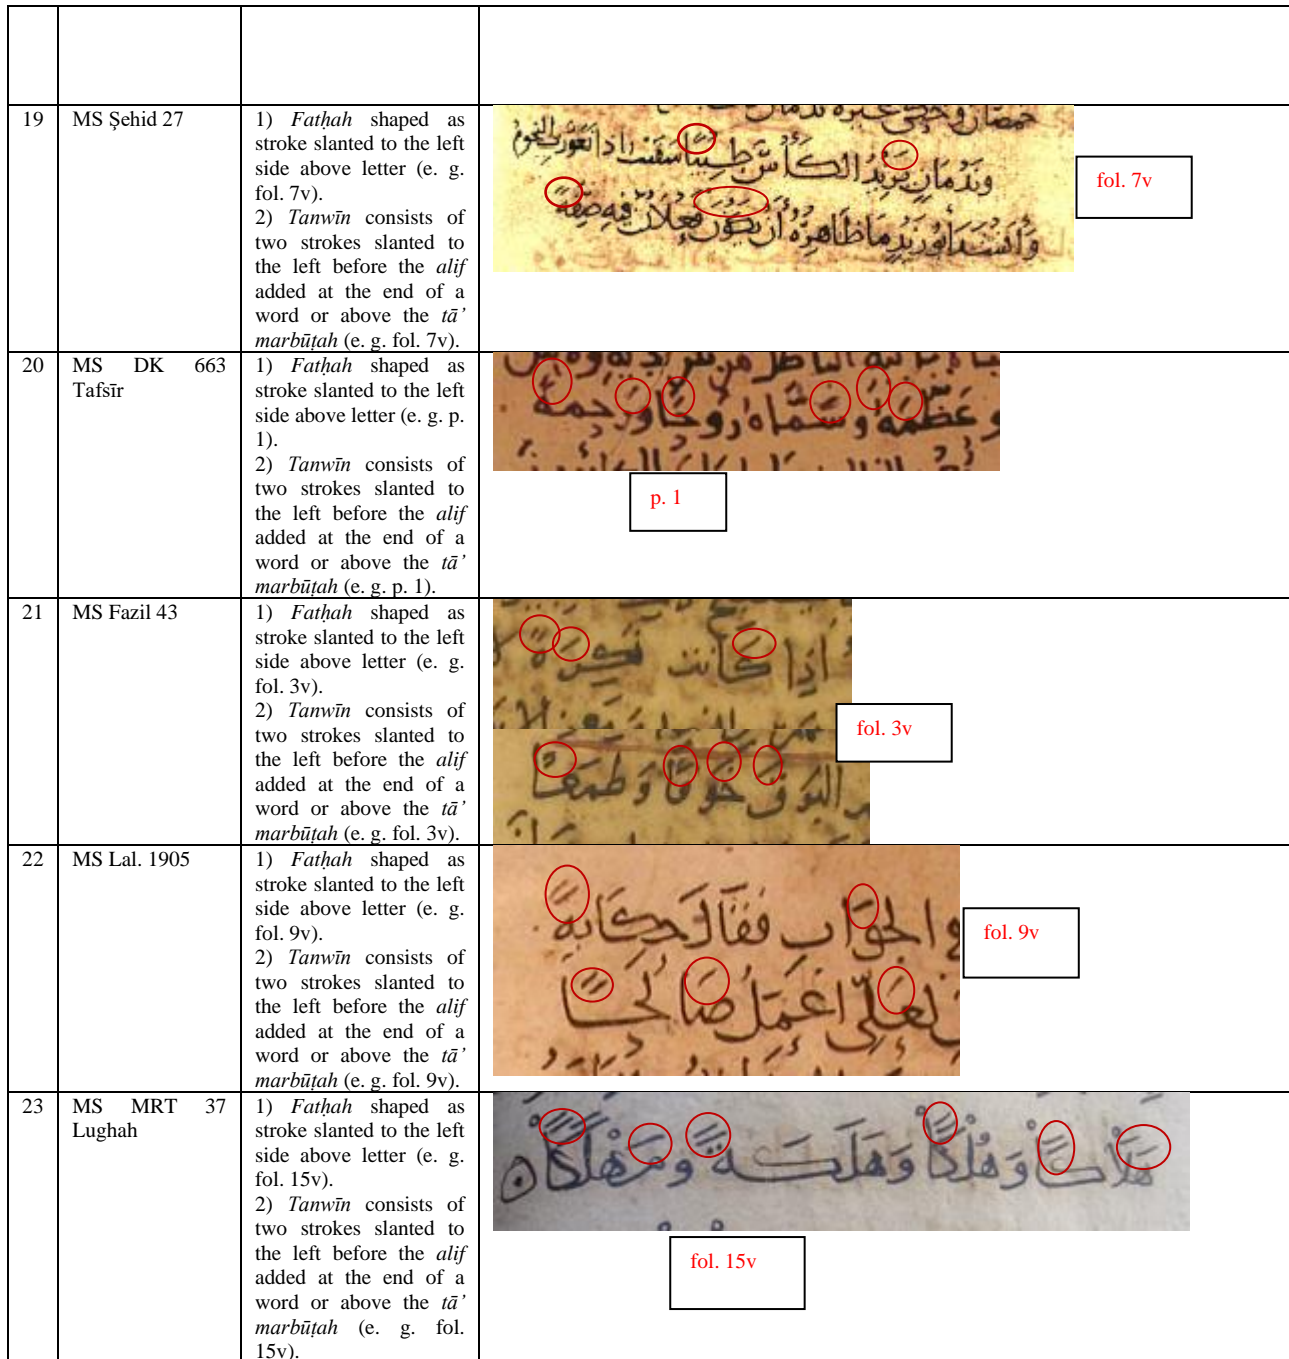 19
MS Şehid 27
1) Fatḥah shaped as
stroke slanted to the left
side above letter (e. g.
fol. 7v).
2) Tanwīn consists of
two strokes slanted to
the left before the alif
added at the end of a
word or above the tā’
marbūṭah (e. g. fol. 7v).
وَنَدْمَانٍ يَزِيدُ الكَأْسَ طِيبًا سَقَيْتُ إذا تَغَوَّرَتِ النجومُ
وَأَنْشَدَ أبو زيدٍ ما ظاهِرُهُ أن يَكُونَ فَعْلَانٌ فيهِ صِفَةً
fol. 7v
20
MS DK 663
Tafsīr
1) Fatḥah shaped as
stroke slanted to the left
side above letter (e. g. p.
1).
2) Tanwīn consists of
two strokes slanted to
the left before the alif
added at the end of a
word or above the tā’
marbūṭah (e. g. p. 1).
وعَظَّمَهُ وسَمَّاهُ رُوحًا ورَحمةً
p. 1
21
MS Fazil 43
1) Fatḥah shaped as
stroke slanted to the left
side above letter (e. g.
fol. 3v).
2) Tanwīn consists of
two strokes slanted to
the left before the alif
added at the end of a
word or above the tā’
marbūṭah (e. g. fol. 3v).
إذا كَانت نَكِرَةً
خَوفًا وَطمَعًا
fol. 3v
22
MS Lal. 1905
1) Fatḥah shaped as
stroke slanted to the left
side above letter (e. g.
fol. 9v).
2) Tanwīn consists of
two strokes slanted to
the left before the alif
added at the end of a
word or above the tā’
marbūṭah (e. g. fol. 9v).
الجَوَابِ فَقَالَ حِكَايَةً
لَعَلِّي أَعْمَلُ صَالِحًا
fol. 9v
23
MS MRT 37
Lughah
1) Fatḥah shaped as
stroke slanted to the left
side above letter (e. g.
fol. 15v).
2) Tanwīn consists of
two strokes slanted to
the left before the alif
added at the end of a
word or above the tā’
marbūṭah (e. g. fol.
15v).
هَلَاكًا وَهُلْكًا وَهَلَكَةً ومَهْلَكًا
fol. 15v